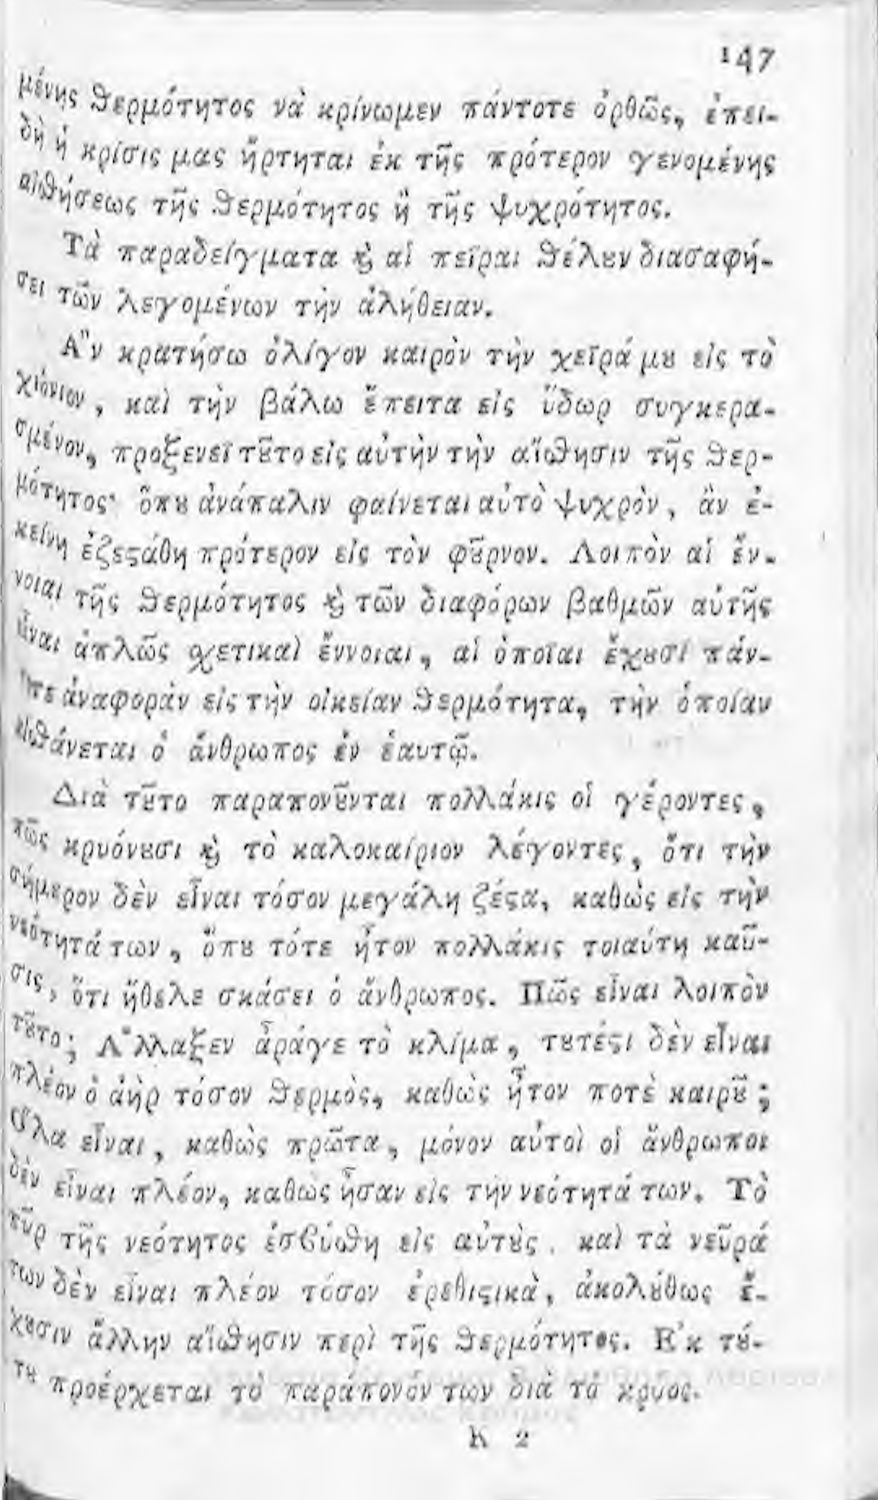 147
μένης θερμότητος νὰ κρίνωμεν πάντοτε ὀρθῶς, ἐπει-
δὴ ἡ κρίσις μας ἤρτηται ἐκ τῆς πρότερον γενομένης
αἰσθήσεως τῆς θερμότητος ἢ τῆς ψυχρότητος.
Τὰ παραδείγματα ϗ̀ αἱ πεῖραι θέλȣν διασαφή-
σει τῶν λεγομένων τὴν ἀλήθειαν.
Α῍ν κρατήσω ὀλίγον καιρὸν τὴν χεῖρά μȣ εἰς τὸ
χιόνιον, καὶ τὴν βάλω ἔπειτα εἰς ὕδωρ συγκερα-
σμένον, προξενεῖ τȣ͂το εἰς αὐτὴν τὴν αἴσθησιν τῆς θερ-
μότητος· ὅπȣ ἀνάπαλιν φαίνεται αὐτὸ ψυχρὸν, ἂν ἐ-
κείνη ἐζεϛάθη πρότερον εἰς τὸν φȣ͂ρνον. Λοιπὸν αἱ ἔν-
νοιαι τῆς θερμότητος ϗ̀ τῶν διαφόρων βαθμῶν αὐτῆς
εἶναι ἁπλῶς σχετικαὶ ἔννοιαι, αἱ ὁποῖαι ἔχȣσι πάν-
τοτε ἀναφορὰν εἰς τὴν οἰκείαν θερμότητα, τὴν ὁποίαν
αἰσθάνεται ὁ ἄνθρωπος ἐν ἑαυτῷ.
Διὰ τȣ͂το παραπονȣ͂νται πολλάκις οἱ γέροντες,
πῶς κρυόνȣσι ϗ̀ τὸ καλοκαίριον λέγοντες, ὅτι τὴν
σήμερον δὲν εἶναι τόσον μεγάλη ζέϛα, καθὼς εἰς τὴν
νεότητά των, ὅπȣ τότε ἦτον πολλάκις τοιαύτη καῦ-
σις, ὅτι ἤθελε σκάσει ὁ ἄνθρωπος. Πῶς εἶναι λοιπὸν
τȣ͂το; Α῎λλαξεν ἆράγε τὸ κλίμα, τȣτέϛι δὲν εἶναι
πλέον ὁ ἀὴρ τόσον θερμὸς, καθὼς ἦτον ποτὲ καιρȣ͂;
Ο῞λα εἶναι, καθὼς πρῶτα, μόνον αὐτοὶ οἱ ἄνθρωποι
δὲν εἶναι πλέον, καθὼς ἦσαν εἰς τὴν νεότητά των. Τὸ
πῦρ τῆς νεότητος ἐσϐύσθη εἰς αὐτȣ́ς, καὶ τὰ νεῦρά
των δὲν εἶναι πλέον τόσον ἐρεθιϛικὰ, ἀκολȣ́θως ἔ-
χȣσιν ἄλλην αἴσθησιν περὶ τῆς θερμότητος. Ε᾿κ τȣ́-
τȣ προέρχεται τὸ παράπονόν των διὰ τὸ κρυος.
Κ 2